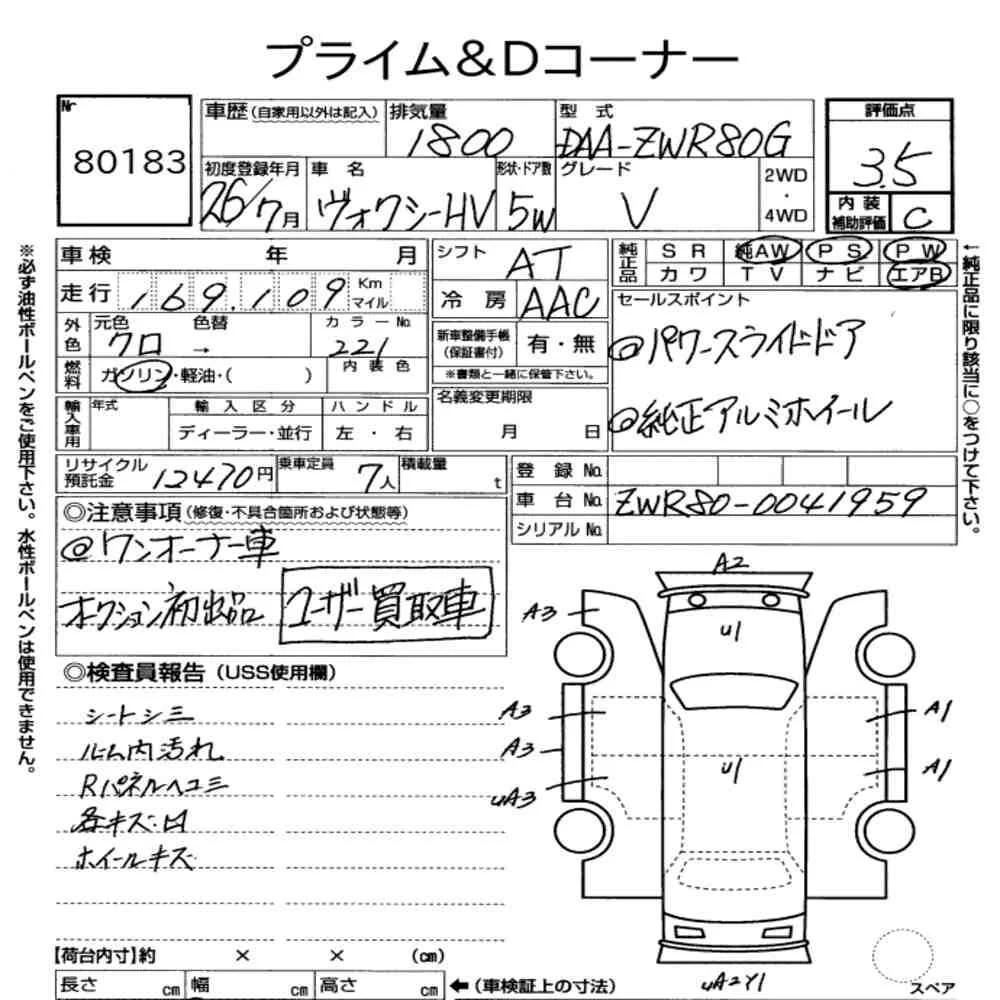 プライム&Dコーナー
Nr 80183
車歴(自家用以外は記入)
排気量 1800
型式 DAA-ZWR80G
評価点 3.5
初度登録年月 26/7月
車名 ヴォクシーHV
形状・ドア数 5W
グレード V
2WD ・ 4WD
内装補助評価 C
車検 年 月
シフト AT
純正品 SR 純AW PS PW
カワ TV ナビ エアB
走行 169,109 Km マイル
冷房 AAC
セールスポイント
外色 元色 クロ 色替 → カラーNo. 221
新車整備手帳(保証書付) 有・無
◎パワースライドドア
燃料 ガソリン・軽油・( )
内装色
※書類と一緒に保管下さい。
輸入車用 年式 輸入区分 ディーラー・並行 ハンドル 左・右
名義変更期限 月 日
◎純正アルミホイール
リサイクル預託金 12470円
乗車定員 7人
積載量 t
登録No.
車台No. ZWR80-0041959
シリアルNo.
◎注意事項(修復・不具合箇所および状態等)
◎ワンオーナー車
オークション初出品 ユーザー買取車
◎検査員報告(USS使用欄)
シートシミ
ルーム内汚れ
Rパネルヘコミ
各キズ・凹
ホイールキズ
A2
A3
U1
A3
A1
A3
U1
A1
UA3
UA2Y1
スペア
【荷台内寸】約 × × (cm)
長さ cm 幅 cm 高さ cm ←(車検証上の寸法)
※必ず油性ボールペンをご使用下さい。水性ボールペンは使用できません。
←純正品に限り該当に○をつけて下さい。